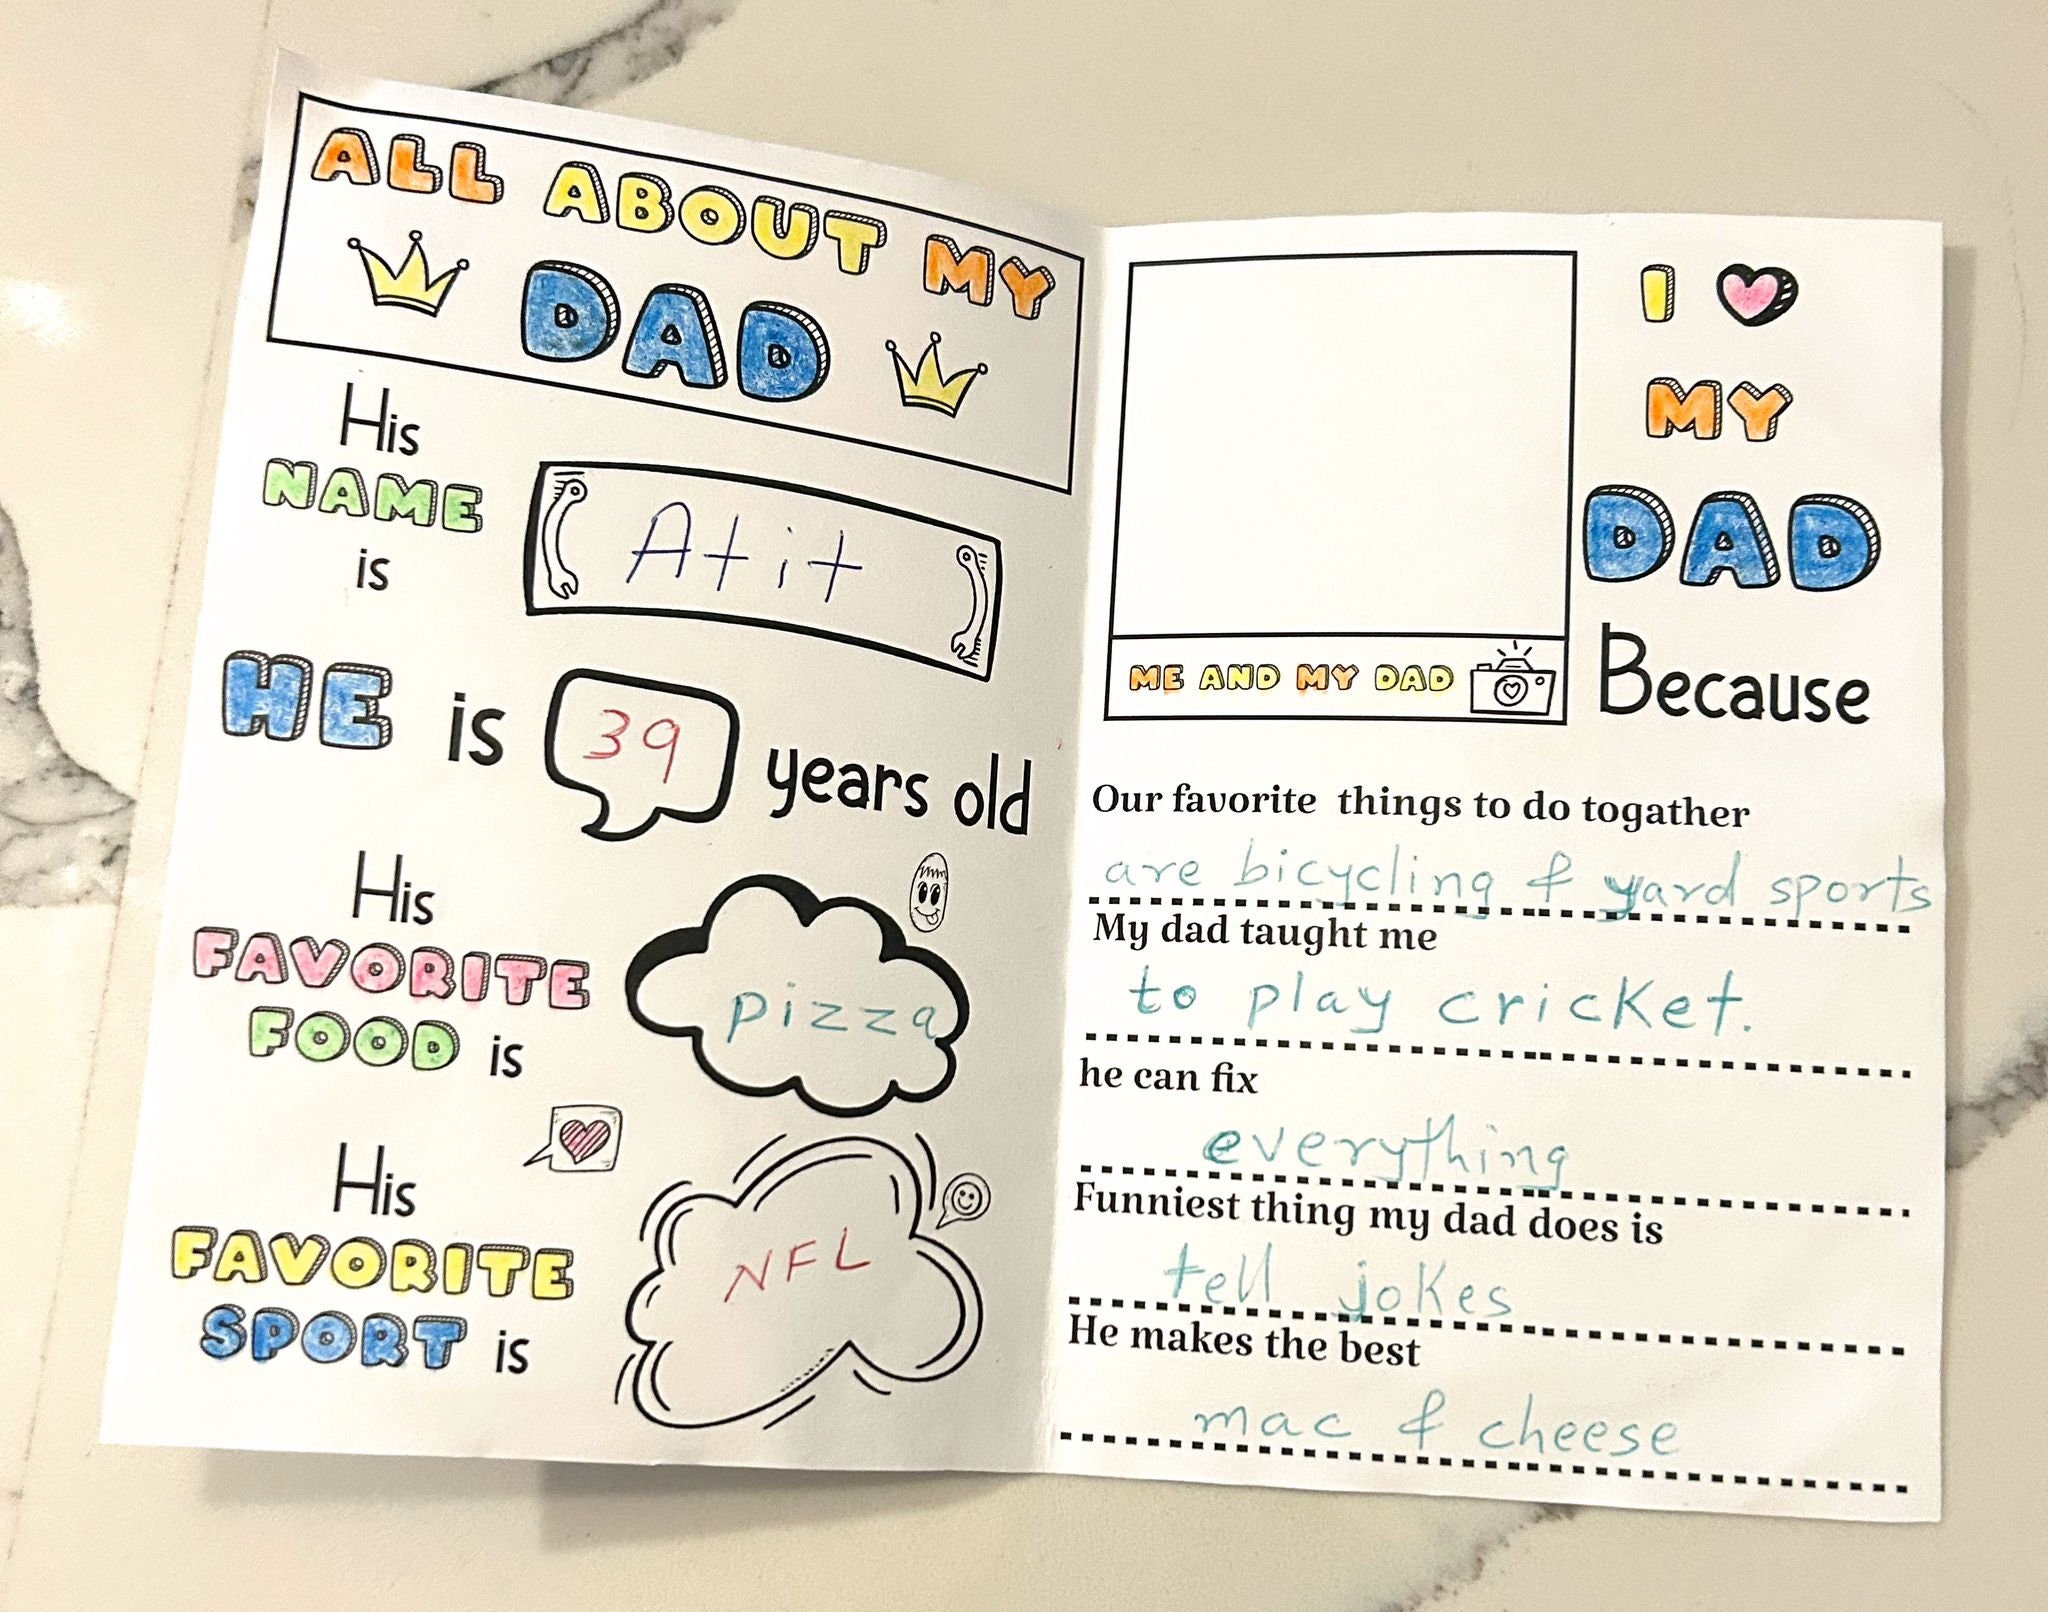 ALL ABOUT MY
DAD
His
NAME
is
Atit
HE is 39 years old
His
FAVORITE
FOOD is
pizza
His
FAVORITE
SPORT is
NFL
I
MY
DAD
Because
ME AND MY DAD
Our favorite things to do togather
are bicycling & yard sports
My dad taught me
to play cricket.
he can fix
everything
Funniest thing my dad does is
tell jokes
He makes the best
mac & cheese